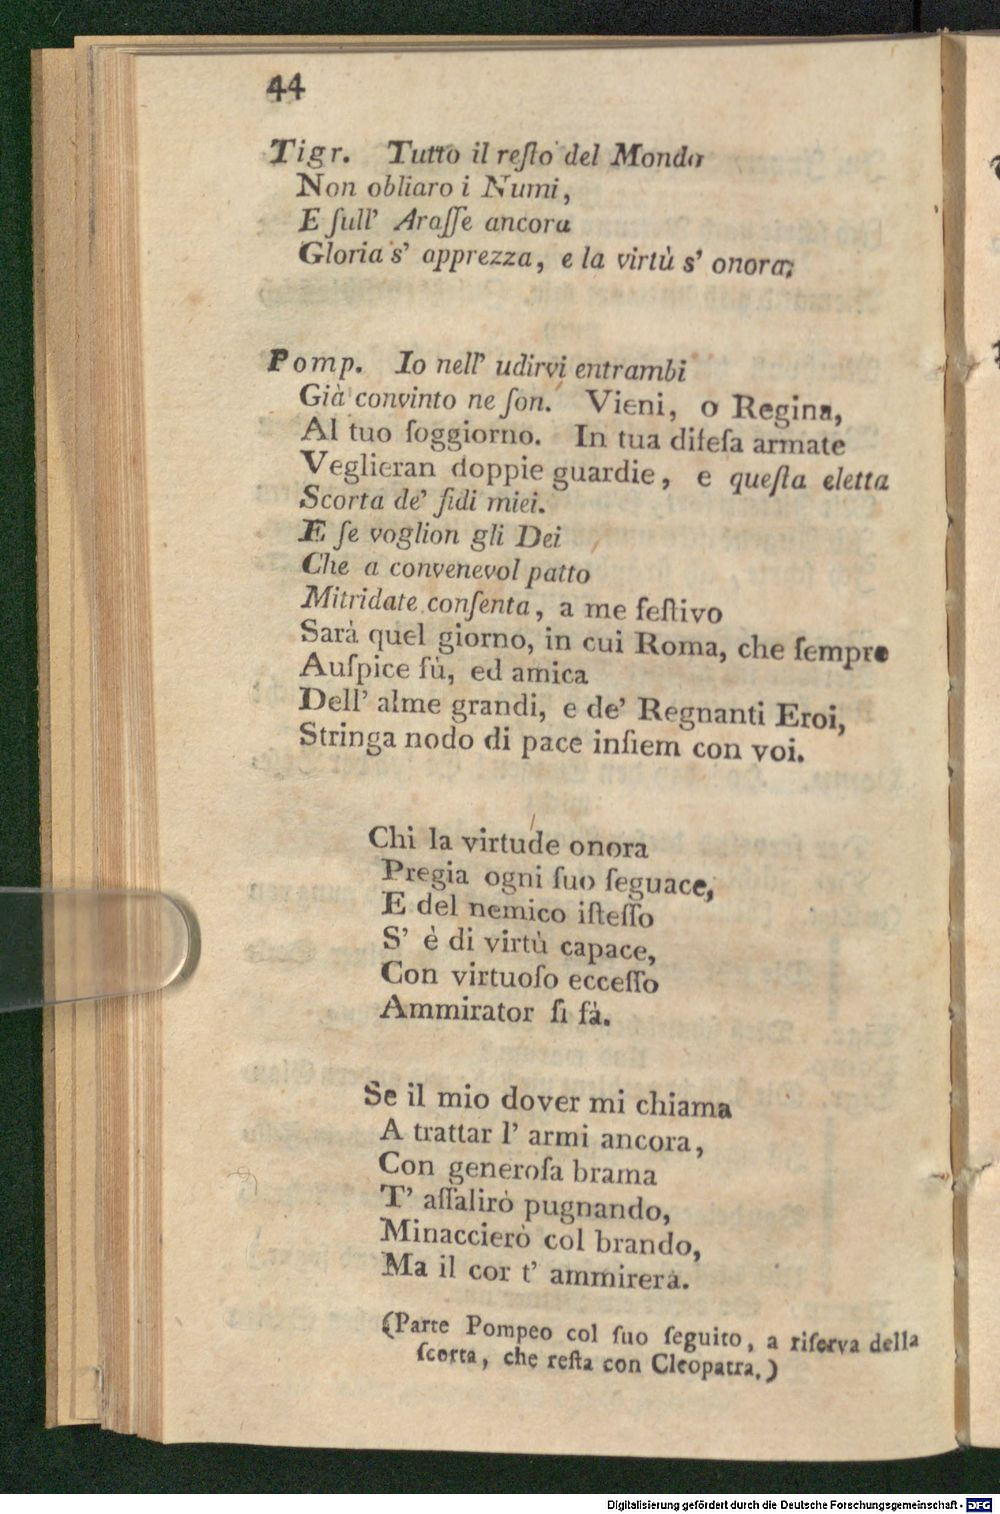 44
Tigr. Tutto il reſto del Mondo
Non obliaro i Numi,
E ſull' Araſſe ancora
Gloria s' apprezza, e la virtù s' onora.
Pomp. Io nell' udirvi entrambi
Già convinto ne ſon. Vieni, o Regina,
Al tuo ſoggiorno. In tua difeſa armate
Veglieran doppie guardie, e queſta eletta
Scorta de' fidi miei.
E ſe voglion gli Dei
Che a convenevol patto
Mitridate conſenta, a me feſtivo
Sarà quel giorno, in cui Roma, che ſempre
Auſpice fù, ed amica
Dell' alme grandi, e de' Regnanti Eroi,
Stringa nodo di pace inſiem con voi.
Chi la virtude onora
Pregia ogni ſuo ſeguace,
E del nemico iſteſſo
S' è di virtù capace,
Con virtuoſo ecceſſo
Ammirator ſi fà.
Se il mio dover mi chiama
A trattar l' armi ancora,
Con generoſa brama
T' aſſalirò pugnando,
Minaccierò col brando,
Ma il cor t' ammirerà.
(Parte Pompeo col ſuo ſeguito, a riſerva della
ſcorta, che reſta con Cleopatra.)
Digitalisierung gefördert durch die Deutsche Forschungsgemeinschaft - DFG